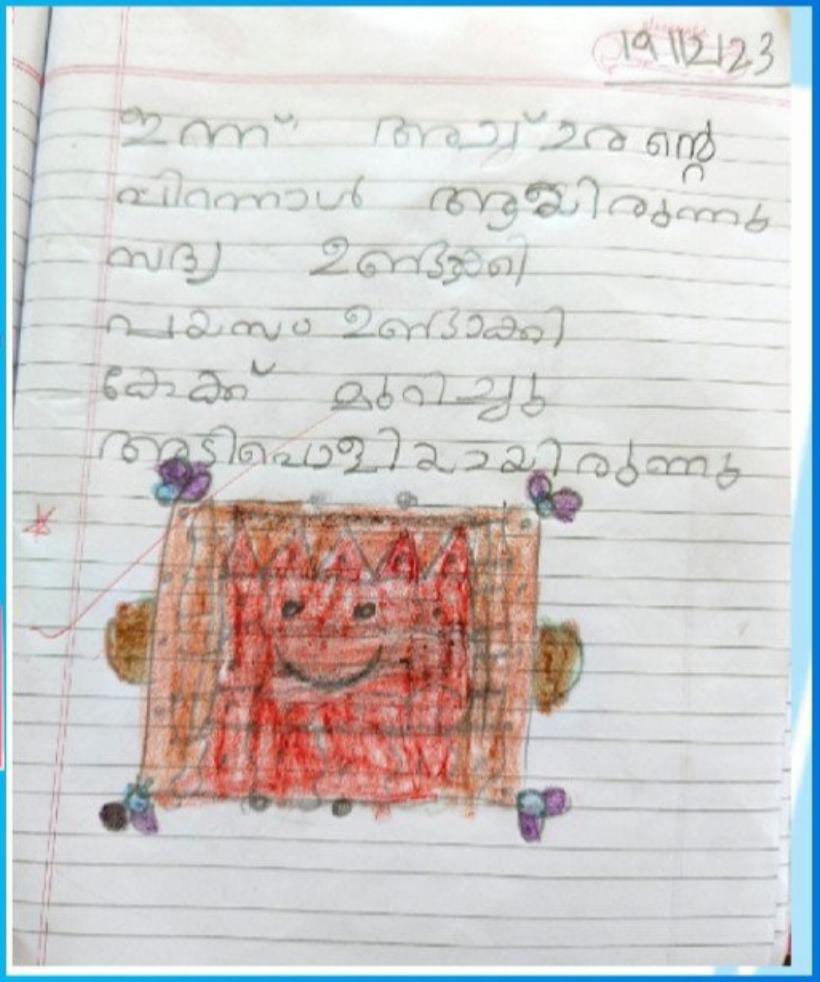 19/12/23
ഇന്ന്
പിറന്നാൾ ആയിരുന്നു
സദ്യ ഉണ്ടാക്കി
പയസം ഉണ്ടാക്കി
കേക്ക് മുറിച്ചു
അടിപൊളിയായിരുന്നു